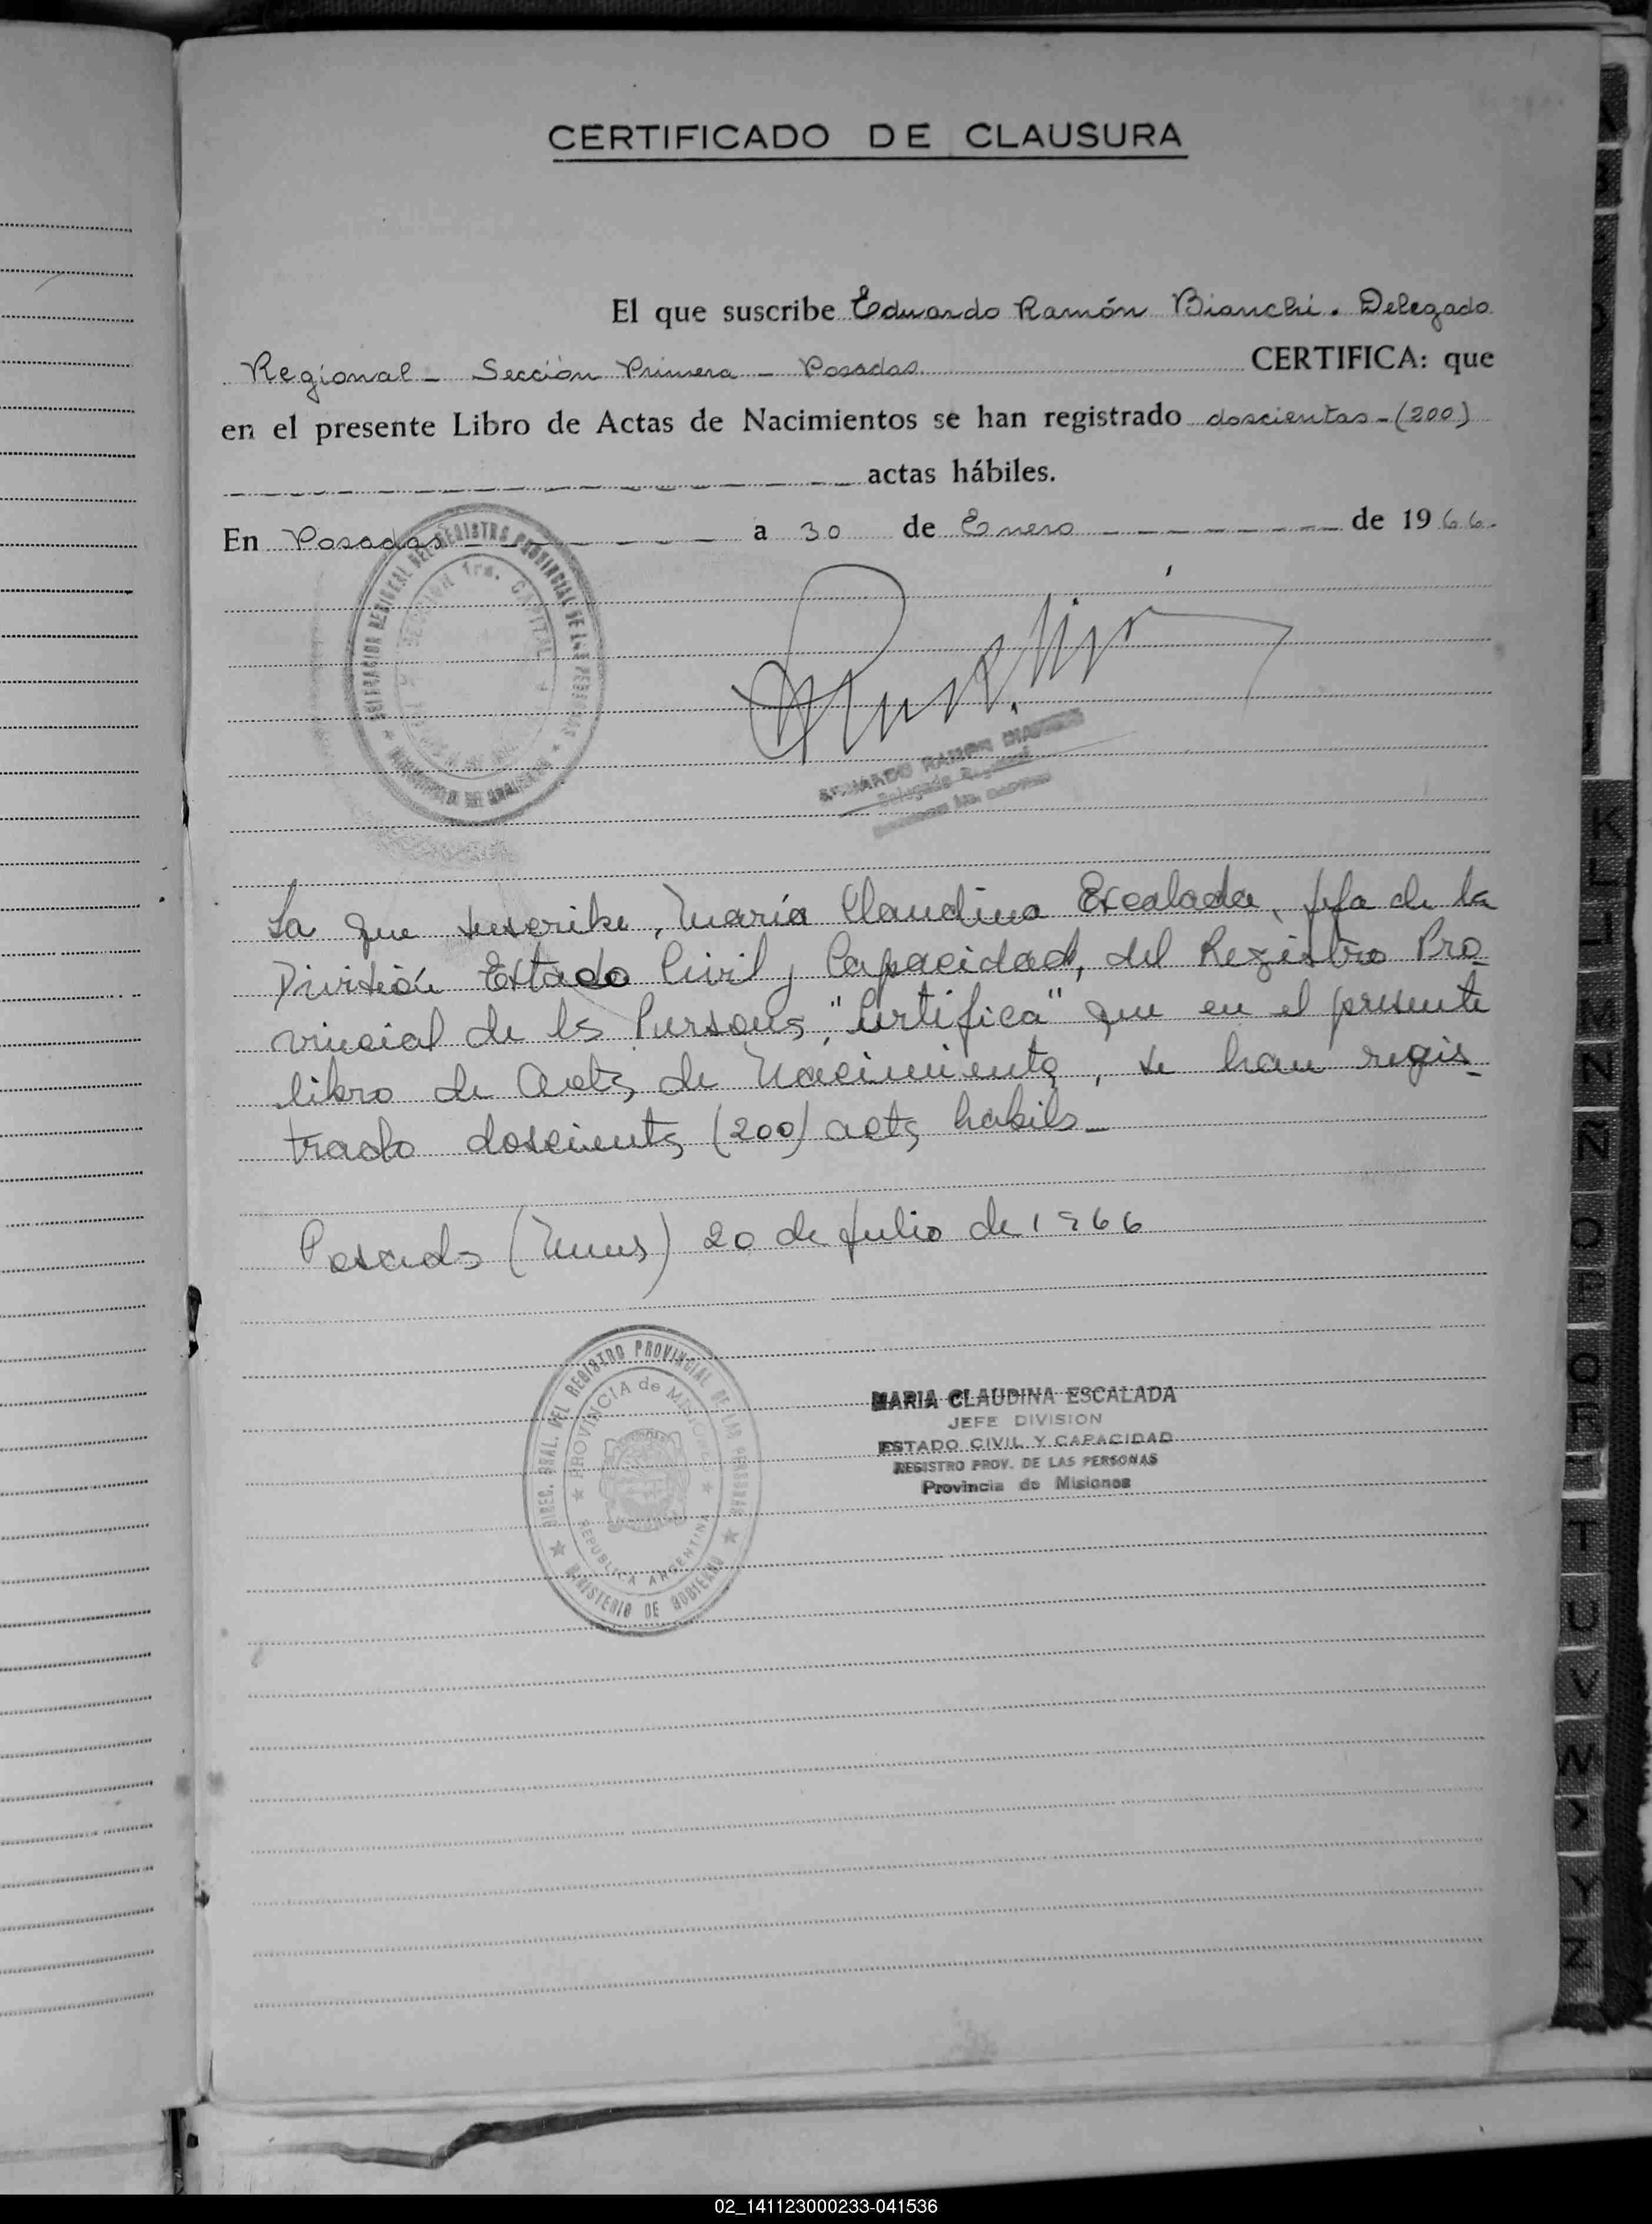 CERTIFICADO DE CLAUSURA
El que suscribe Eduardo Ramón Bianchi. Delegado
Regional - Sección Primera - Posadas CERTIFICA: que
en el presente Libro de Actas de Nacimientos se han registrado doscientas - (200)
actas hábiles.
En Posadas a 30 de Enero de 1966.
DELEGACION REGIONAL DEL REGISTRO PROVINCIAL DE LAS PERSONAS
SECCION 1ra. CAPITAL
EDUARDO RAMON BIANCHI
Delegado Regional
La que suscribe, María Claudina Escalada, jefa de la
División Estado Civil y Capacidad, del Registro Pro
vincial de ls Persons, "Certifica" que en el presente
libro de Acts de Nacimients, se han regis
trado doscients (200) acts habils -
Posads (Mnes) 20 de julio de 1966
DIREC. GRAL. DEL REGISTRO PROVINCIAL DE LAS PERSONAS
PROVINCIA de MISIONES
REPUBLICA ARGENTINA
MINISTERIO DE GOBIERNO
MARIA CLAUDINA ESCALADA
JEFE DIVISION
ESTADO CIVIL Y CAPACIDAD
REGISTRO PROV. DE LAS PERSONAS
Provincia de Misiones
K
L
M
N
Ñ
O
P
Q
R
T
U
V
W
Y
Z
02_141123000233-041536